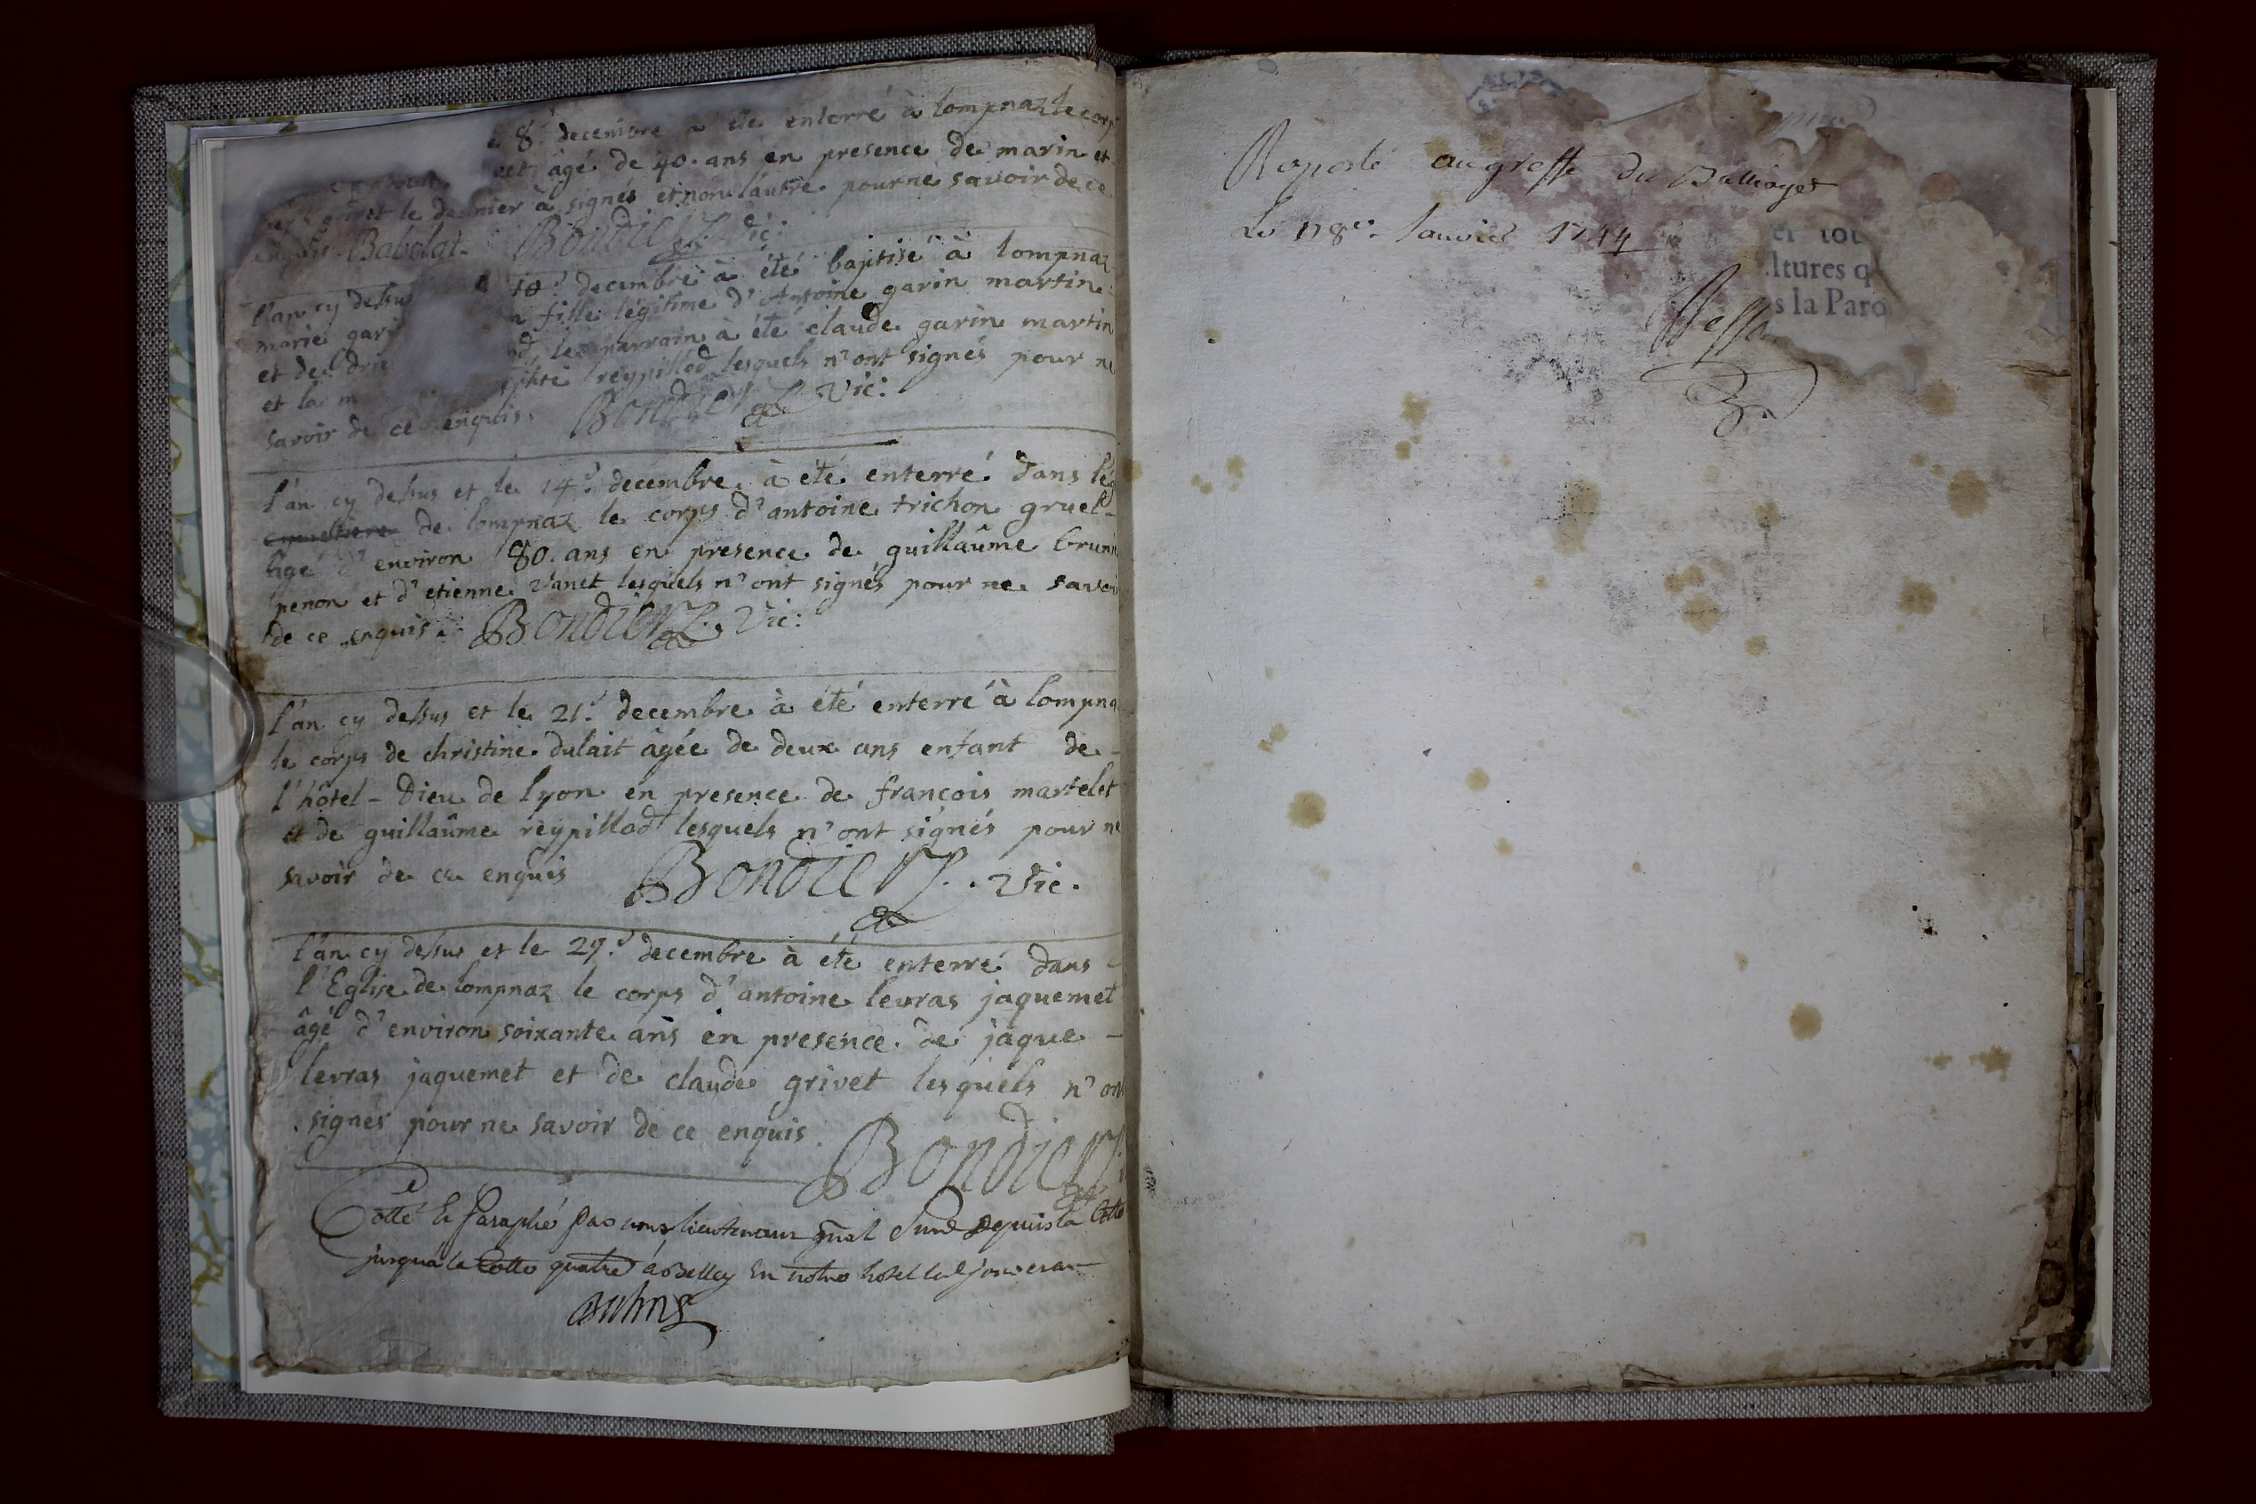 8.e decembre à été enterré à lompnaz le corp
âgé de 40. ans en presence de marin et
le dernier à signés et non l'autre pour ne savoir de ce
Babolat. Bondier Vic:
l'an cy dessus 10.e decembre à été baptisé à lompnaz
marie gari fille légitime d'Antoine garin martin
et de le parrain à été claude garin martin
et la m reypillod lesquels n'ont signés pour ne
savoir de ce enquis. Bondier Vic:
l'an cy dessus et le 14.e decembre à été enterré dans l'ég
cimetiere de lompnaz le corps d'antoine trichon gruel-
âgé d'environ 80. ans en presence de guillaûme brun
penon et d'etienne Vanet lesquels n'ont signés pour ne savoir
de ce enquis. Bondier Vic:
l'an cy dessus et le 21.e decembre à été enterré à lompna
le corps de christine dulait âgée de deux ans enfant de-
l'hôtel-Dieu de lyon en presence de françois martelet
et de guillaûme reypillod lesquels n'ont signés pour ne
savoir de ce enquis Bondier. Vic.
l'an cy dessus et le 29.e decembre à été enterré dans-
l'Eglise de lompnaz le corps d'antoine levras jaquemet
âgé d'environ soixante ans en presence de jaque-
levras jaquemet et de claude grivet lesquels n'ont
signés pour ne savoir de ce enquis. Bondier
Cotté et Paraphé par nous lieutenant depuis la Cotte
jusqua la Cotte quatre à Belley en notre hotel
Raporté au greffe du Balliage
Le 18e. Janvier 1744
er tou
ltures q
s la Paro